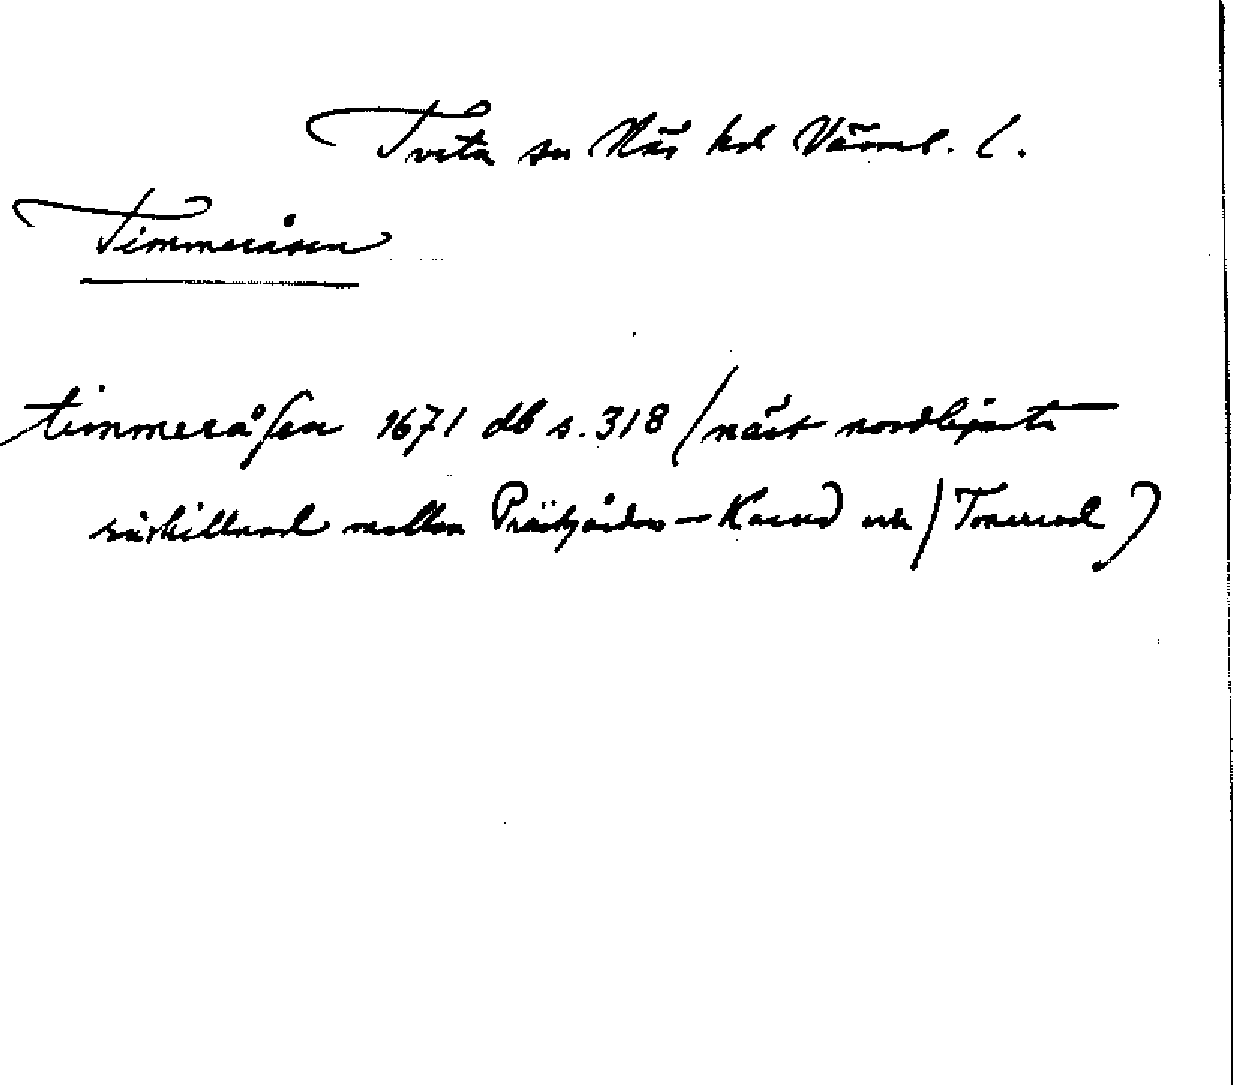 Tveta sn Näs hd Värml. l.
Timmeråsen
timmeråsen 1671 db s. 318 (näst nordligaste
särkillnad mellan Prästgården – Karud och